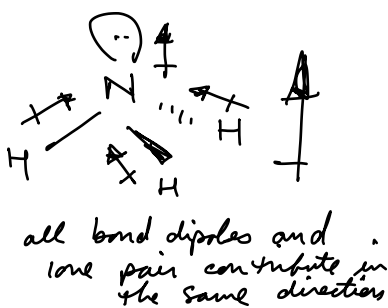 N
H
H
H
all bond dipoles and
lone pair contribute in
the same direction